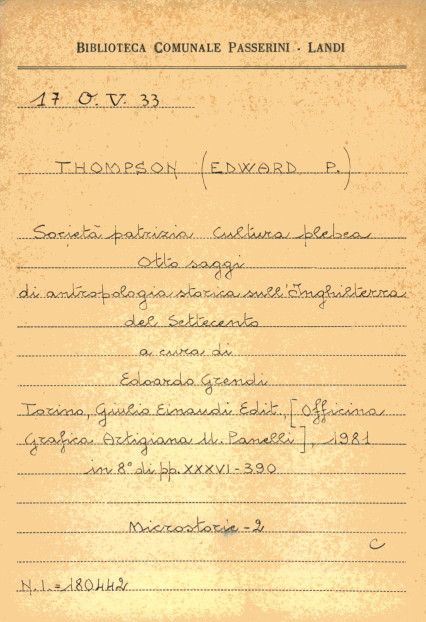 BIBLIOTECA COMUNALE PASSERINI - LANDI
17 O. V. 33
THOMPSON (EDWARD P.)
Società patrizia Cultura plebea
Otto saggi
di antropologia storica sull'Inghilterra
del Settecento
a cura di
Edoardo Grendi
Torino, Giulio Einaudi Edit., [Officina
Grafica Artigiana U. Panelli], 1981
in 8° di pp. XXXVI-390
Microstorie - 2
C
N. I. = 180442